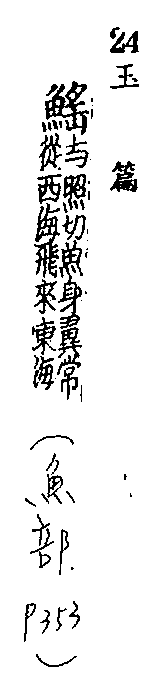 24玉篇
鰩与照切魚身翼常
從西海飛來東海
(魚部.P353)